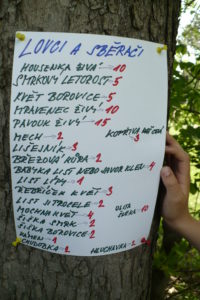 LOVCI A SBĚRAČI
HOUSENKA ŽIVÁ → 10
SMRKOVÝ LETOROST → 5
KVĚT BOROVICE → 5
MRAVENEC ŽIVÝ → 10
PAVOUK ŽIVÝ → 15
MECH → 2
KOPŘIVA
LIŠEJNÍK → 3
BŘEZOVÁ KŮRA → 2
BABYKA LIST NEBO JAVOR KLEN → 4
LIST LÍPY → 1
ŘEBŘÍČEK KVĚT → 3
LIST JITROCELE → 2
MOCHNA KVĚT → 4
ŠIŠKA SMRK → 2
ŠIŠKA BOROVICE
KÁMEN → 1
CHUDOBKA → 1
HLUCHAVKA → 2